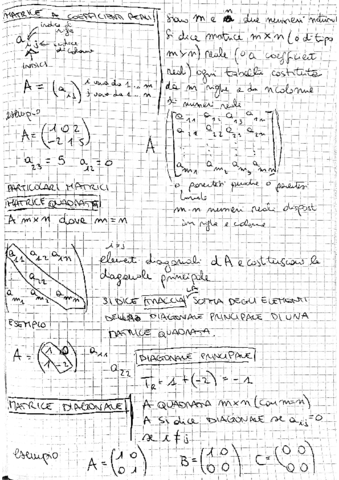 MATRICE A COEFFICIENTI REALI
indice di riga
a
ij
indice di colonna
INDICI
A = (a ij) i varia da 1 ... m
j varia da 1 ... n
esempio
A = (1 0 2
-2 1 5)
a23 = 5 a12 = 0
PARTICOLARI MATRICI
MATRICE QUADRATA
A m×n dove m=n
a11 a12 a1n
a22
am1 am2 amn
ESEMPIO
A = (1 0
1 -2) a11
a22
Siano m e n due numeri naturali
Si dice matrice m×n (o di tipo
m×n) reale (o a coefficienti
reali) ogni tabella costituita
da m righe e da n colonne
di numeri reali
A
a11 a12 a13 a1n
a21 a22 a23 a2n
am1 am2 am3 amn
o parentesi quadre o parentesi
tonde
m·n numeri reali disposti
in righe e colonne
i=j
elementi diagonali di A e costituiscono la
diagonale principale
SI DICE TRACCIA LA SOMMA DEGLI ELEMENTI
DELLA DIAGONALE PRINCIPALE DI UNA
MATRICE QUADRATA.
DIAGONALE PRINCIPALE
TR = 1 + (-2) = -1
MATRICE DIAGONALE
A QUADRATA m×n (con m=n)
A SI DICE DIAGONALE se aij = 0
se i ≠ j
esempio A = (1 0
0 1) B = (1 0
0 0) C = (0 0
0 0)